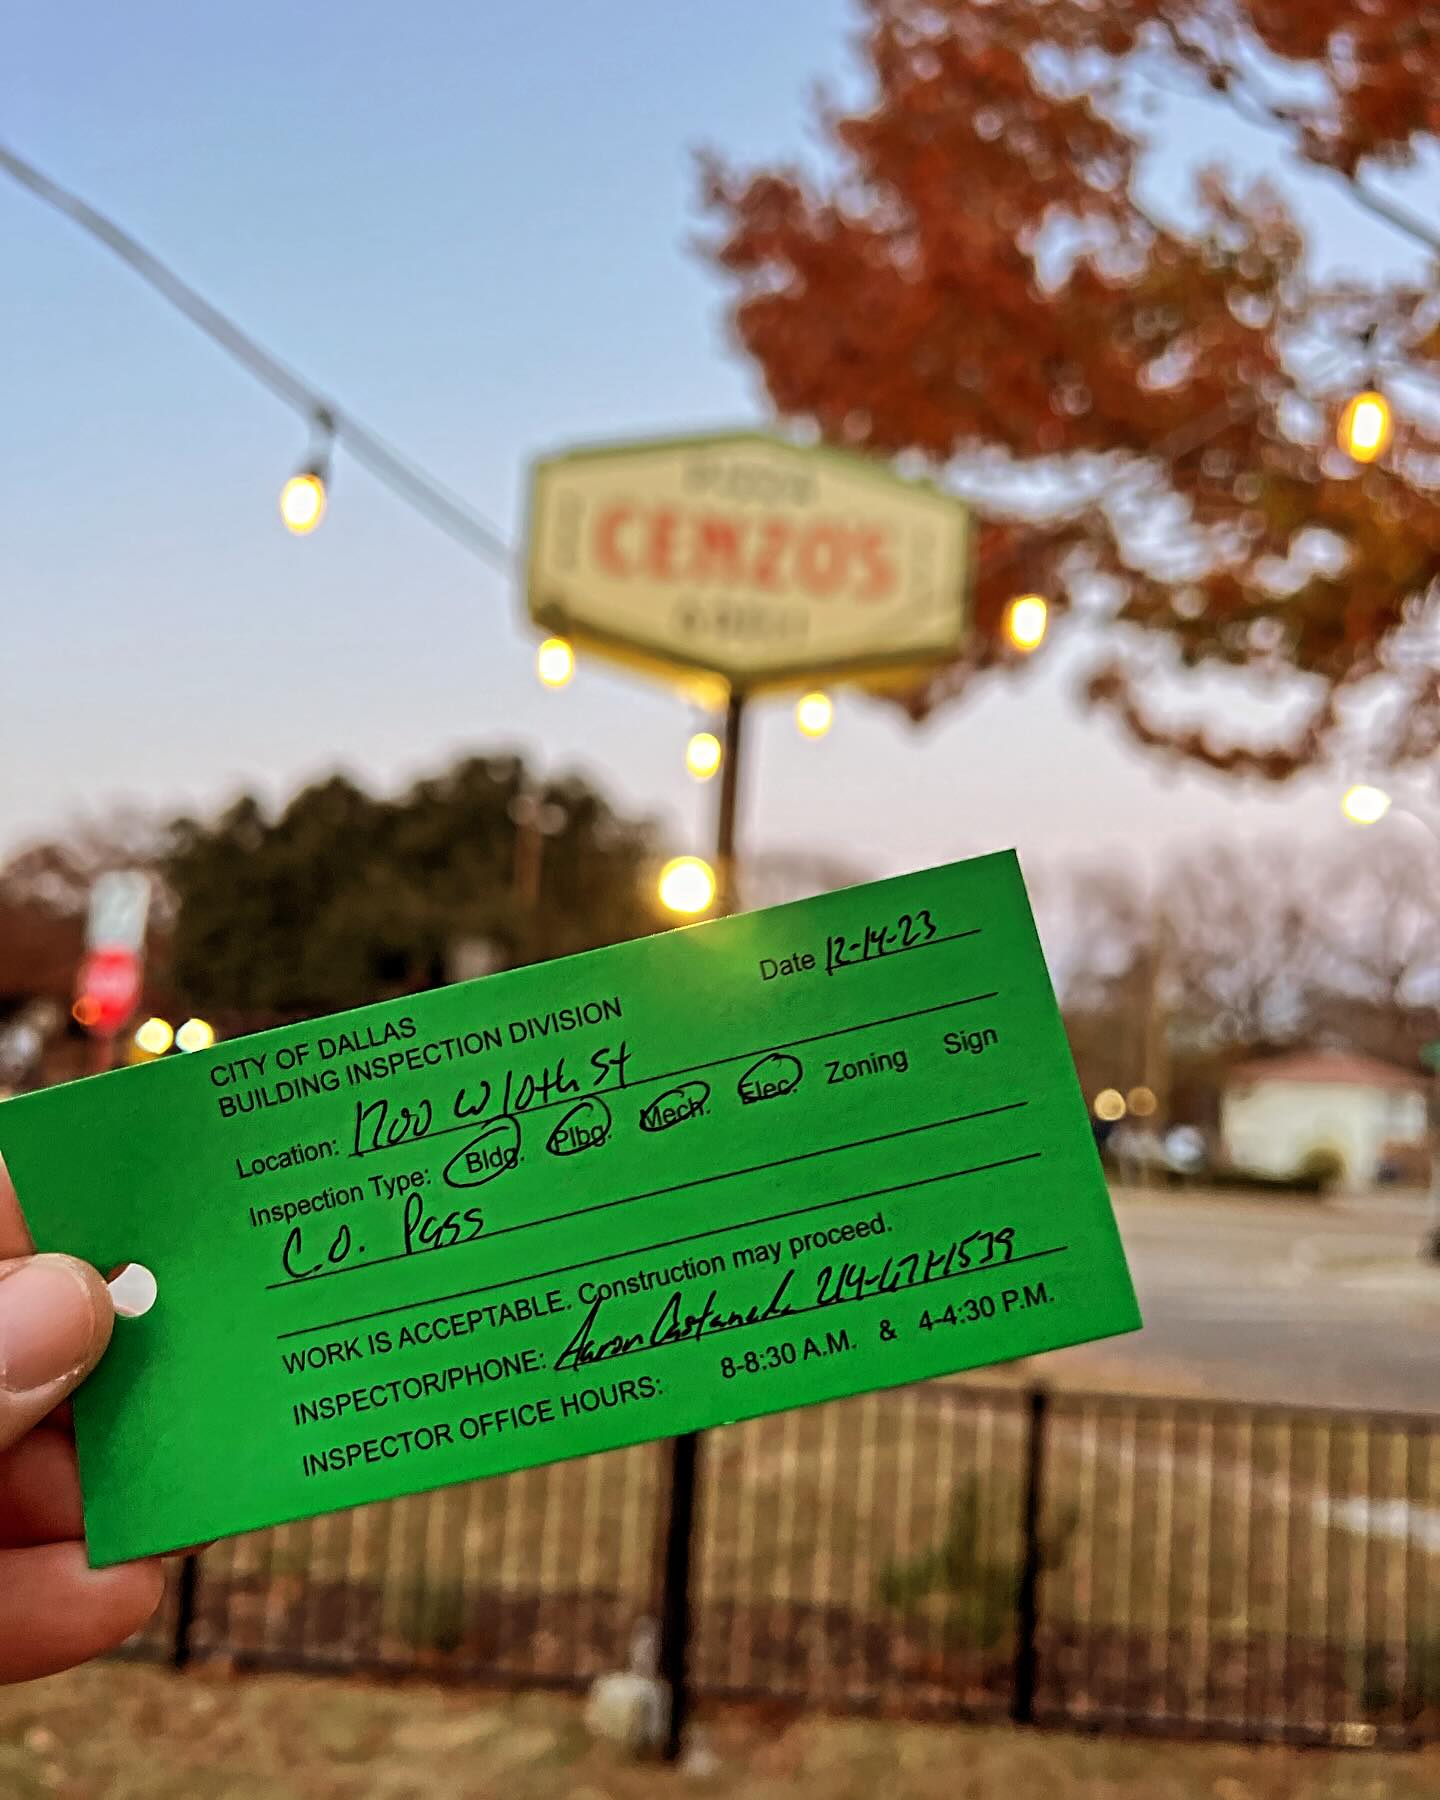 CENZO'S
CITY OF DALLAS
BUILDING INSPECTION DIVISION
Date 12-14-23
Location: 1700 W 10th St
Inspection Type: Bldg. Plbg. Mech. Elec. Zoning Sign
C.O. Pass
WORK IS ACCEPTABLE. Construction may proceed.
INSPECTOR/PHONE: Aaron Castaneda
INSPECTOR OFFICE HOURS: 8-8:30 A.M. & 4-4:30 P.M.